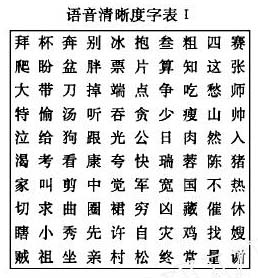 语音清晰度字表 I
拜 杯 奔 别 冰 抱 叁 粗 四 赛
爬 盼 盆 胖 票 片 算 知 这 张
大 带 刀 掉 端 点 争 吃 愁 师
特 偷 汤 听 吞 贪 少 瘦 山 帅
泣 给 狗 跟 光 公 日 肉 然 入
渴 考 看 康 夸 快 瑞 蓉 陈 猪
家 叫 剪 中 觉 军 宽 国 不 热
切 求 曲 圈 裙 穷 凶 藏 催 休
瞎 小 秀 先 许 自 灾 鸡 找
贼 祖 坐 亲 村 松 终 常 是